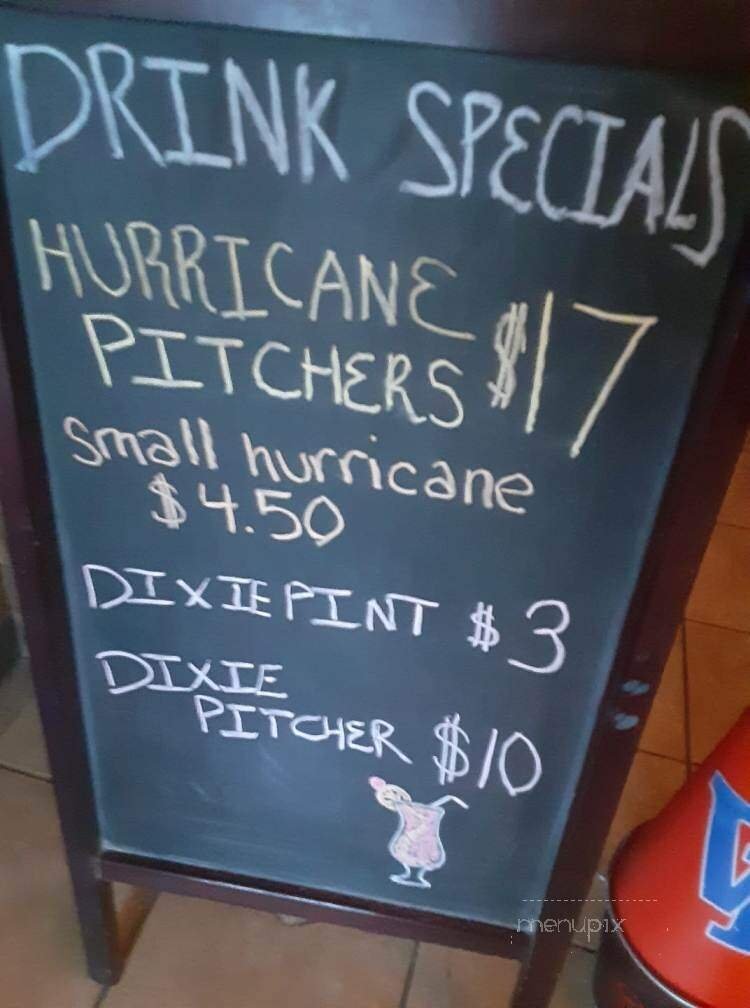 DRINK SPECIALS
HURRICANE
PITCHERS $17
small hurricane
$4.50
DIXIE PINT $3
DIXIE
PITCHER $10
menupix